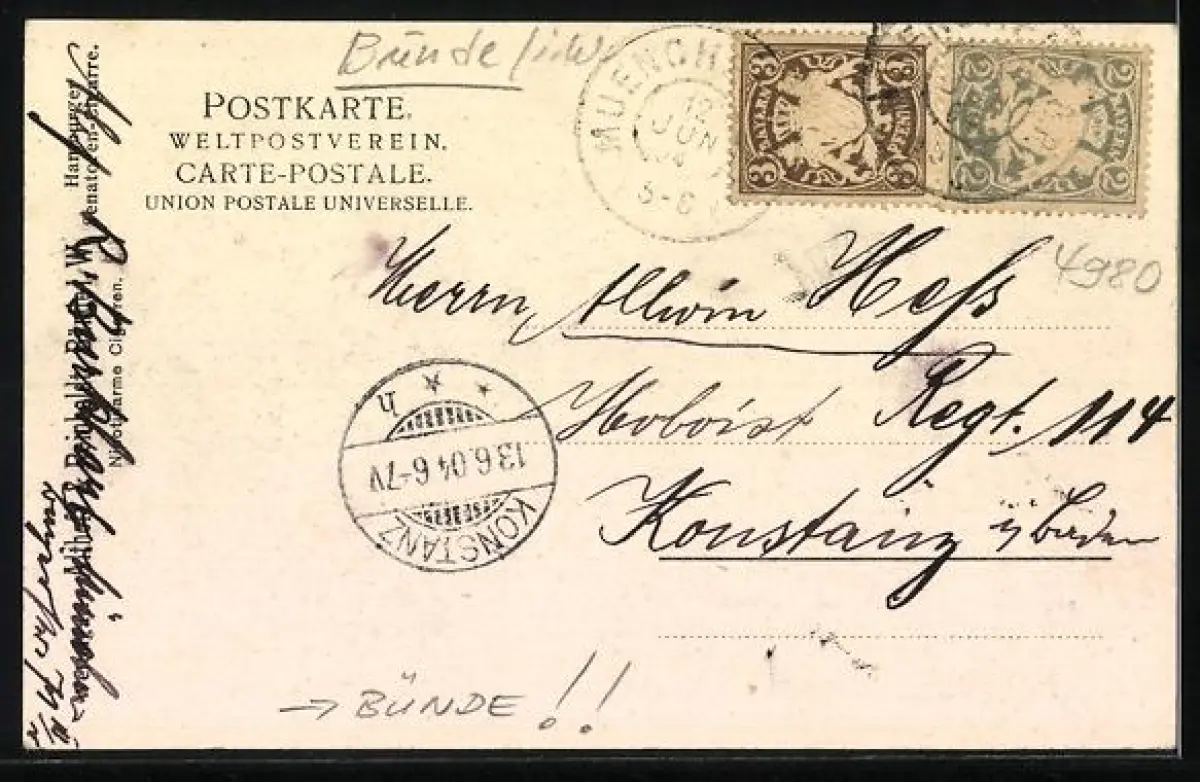 Bünde
POSTKARTE.
WELTPOSTVEREIN.
CARTE-POSTALE.
UNION POSTALE UNIVERSELLE.
MUENCH
12
JUN
04
5-6
3 3
BAYERN
3 3
2 2
BAYERN
2 2
4980
Herrn Allwin Heß
Hoboist Regt. 114
Konstanz i/Baden
KONSTANZ
13.6.04 6-7V
h
→ BÜNDE !!
Hamburger
Senatoren-Cigarre.
Nicotinarme Cigarren.